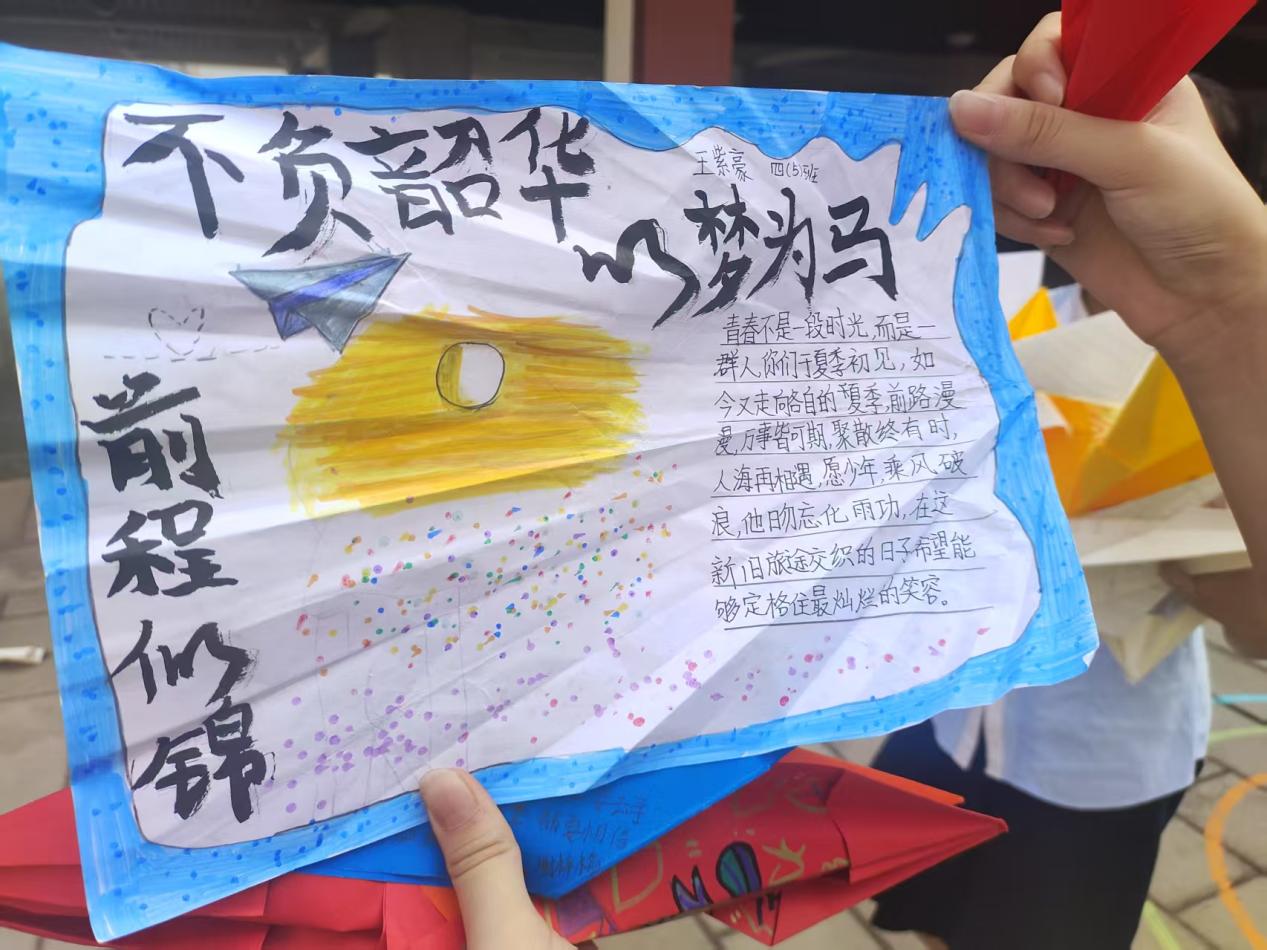 不负韶华
王紫豪 四(5)班
以梦为马
前程似锦
青春不是一段时光,而是一
群人,你们于夏季初见,如
今又走向各自的夏季,前路漫
漫,万事皆可期,聚散终有时,
人海再相遇,愿少年,乘风破
浪,他日勿忘化雨功,在这
新旧旅途交织的日子希望能
够定格住最灿烂的笑容。